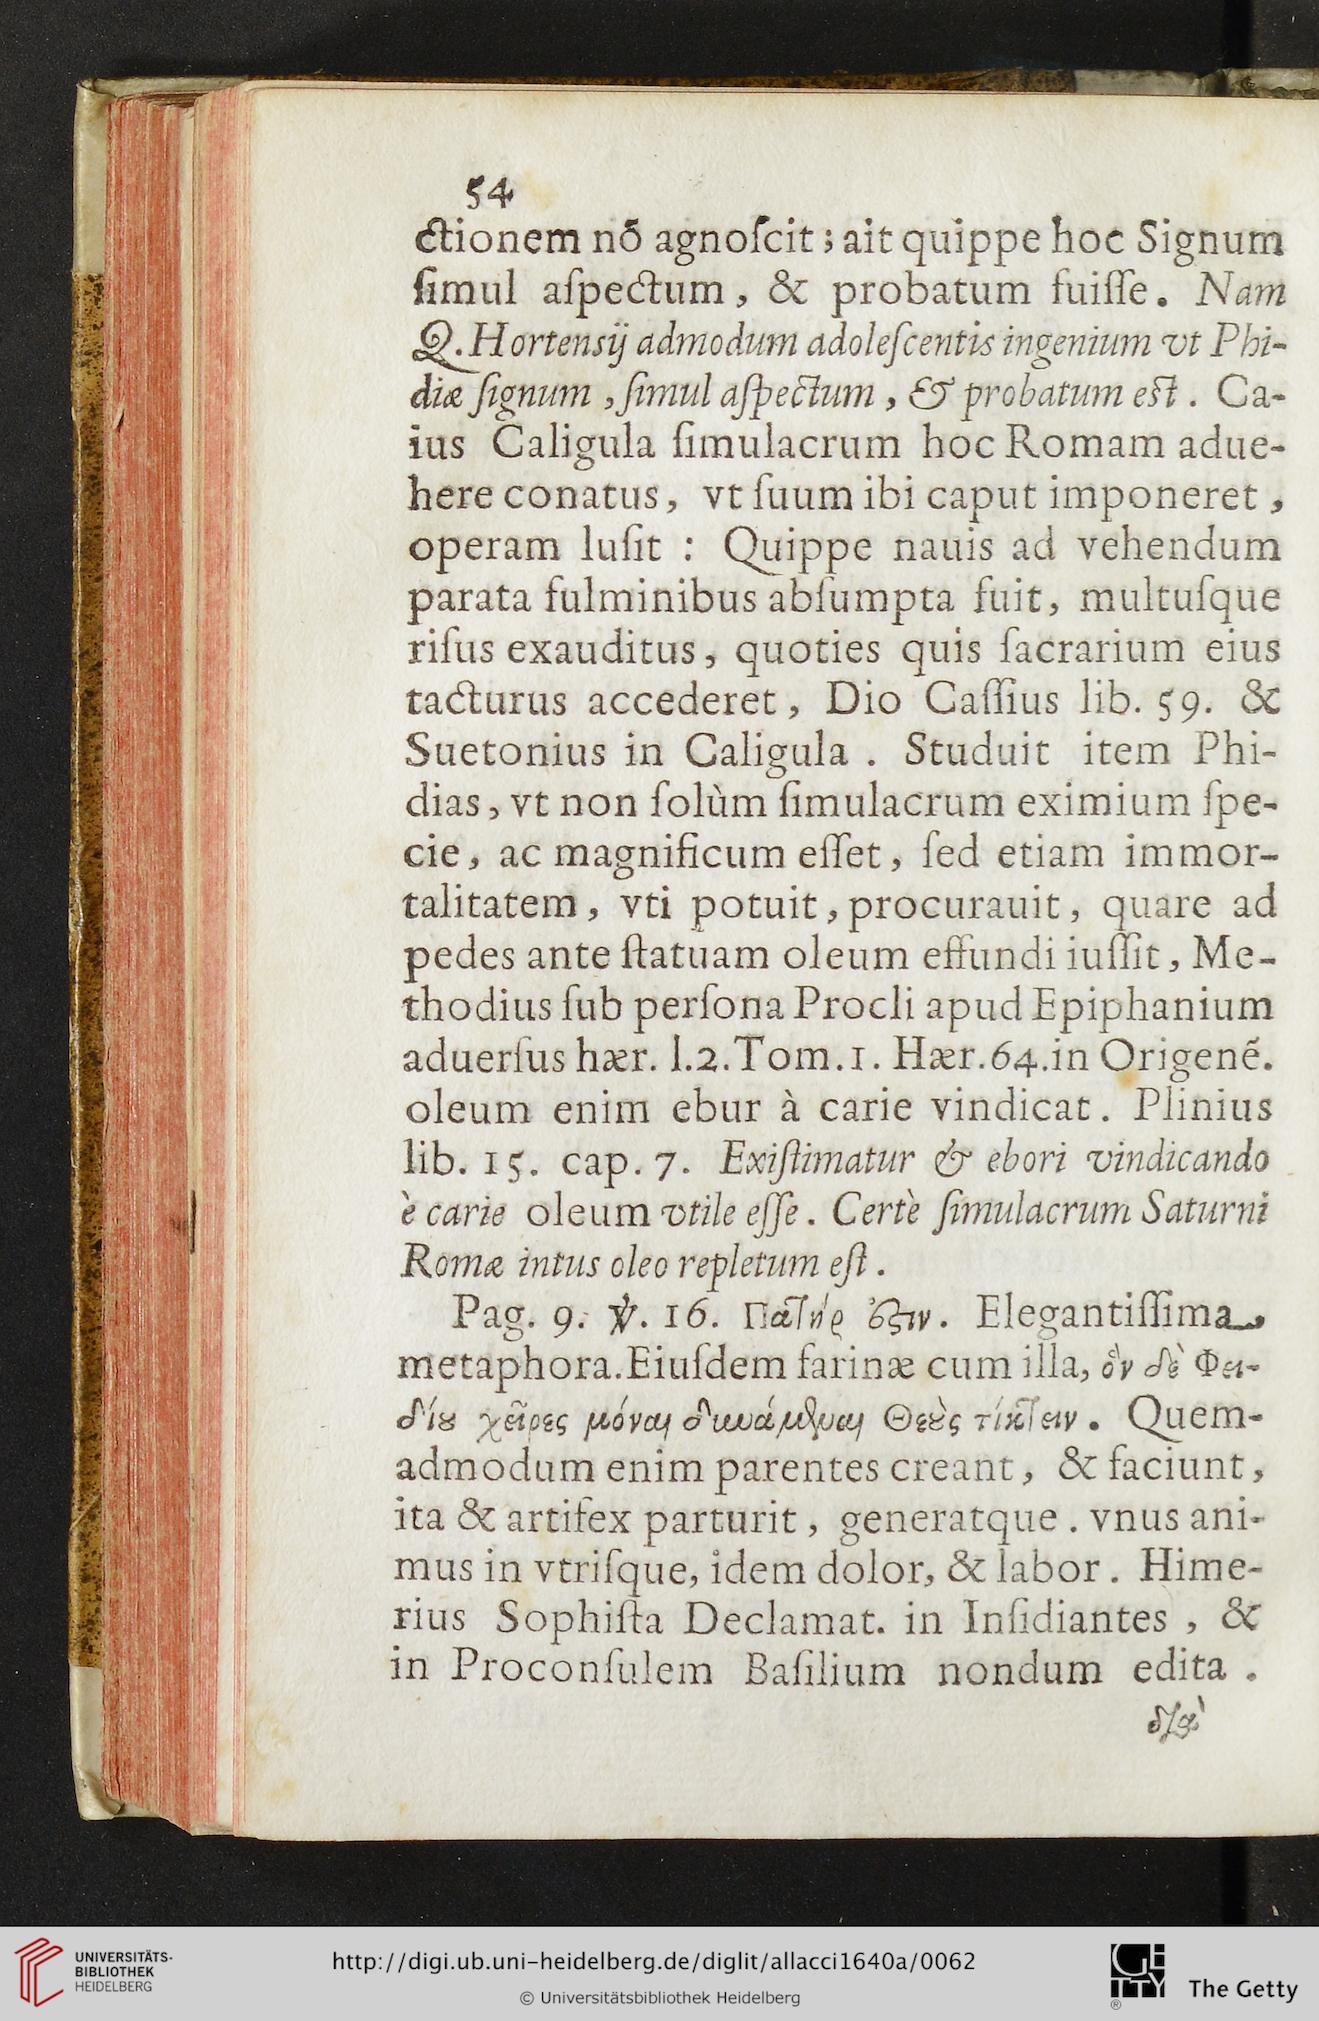 54
ctionem nõ agnoſcit; ait quippe hoc Signum
ſimul aſpectum, & probatum fuiſſe. Nam
Q. Hortensij admodum adoleſcentis ingenium vt Phi-
diæ ſignum, ſimul aſpectum, & probatum eſt. Ca-
ius Caligula ſimulacrum hoc Romam adue-
here conatus, vt ſuum ibi caput imponeret,
operam luſit : Quippe nauis ad vehendum
parata fulminibus abſumpta fuit, multuſque
riſus exauditus, quoties quis ſacrarium eius
tacturus accederet, Dio Caſſius lib. 59. &
Suetonius in Caligula . Studuit item Phi-
dias, vt non ſolùm ſimulacrum eximium ſpe-
cie, ac magnificum eſſet, ſed etiam immor-
talitatem, vti potuit, procurauit, quare ad
pedes ante ſtatuam oleum effundi iuſſit, Me-
thodius ſub perſona Procli apud Epiphanium
aduerſus hær. l.2. Tom.1. Hær.64.in Origenẽ.
oleum enim ebur à carie vindicat. Plinius
lib. 15. cap. 7. Exiſtimatur & ebori vindicando
è carie oleum vtile eſſe. Certè ſimulacrum Saturni
Romæ intus oleo repletum eſt.
Pag. 9. ℣. 16. Πατήρ ὅςιν. Elegantiſſima
metaphora. Eiuſdem farinæ cum illa, ὃν δὲ Φει-
δίου χεῖρες μόναι δυνάμεναι Θεοὺς τίκτειν. Quem-
admodum enim parentes creant, & faciunt,
ita & artifex parturit, generatque. vnus ani-
mus in vtriſque, idem dolor, & labor. Hime-
rius Sophiſta Declamat. in Inſidiantes, &
in Proconſulem Baſilium nondum edita .
διὰ
UNIVERSITÄTS-
BIBLIOTHEK
HEIDELBERG
http://digi.ub.uni-heidelberg.de/diglit/allacci1640a/0062
© Universitätsbibliothek Heidelberg
GETTY
®
The Getty